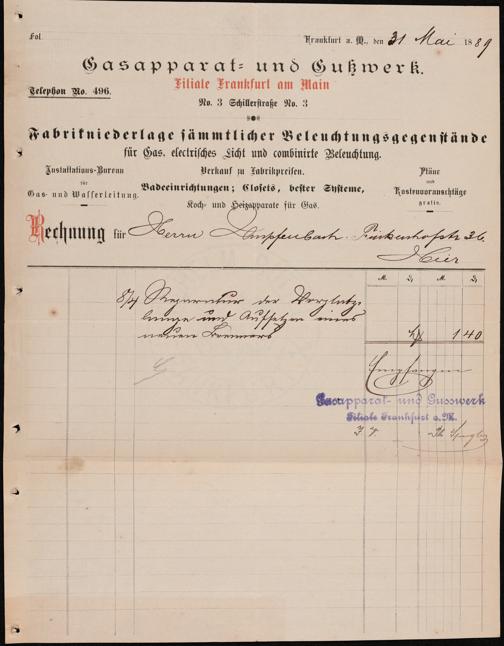 Fol.
Frankfurt a. M., den 31 Mai 1889
Gasapparat- und Gußwerk.
Filiale Frankfurt am Main
Telephon No. 496.
No. 3 Schillerstraße No. 3
Fabrikniederlage sämmtlicher Beleuchtungsgegenstände
für Gas, electrisches Licht und combinirte Beleuchtung.
Installations-Bureau
für
Gas- und Wasserleitung.
Verkauf zu Fabrikpreisen.
Badeeinrichtungen; Closets, bester Systeme,
Koch- und Heizapparate für Gas.
Pläne
und
Kostenvoranschläge
gratis.
Rechnung für Herrn
Hier
M. ₰ M. ₰
8/4 Reparatur der Vorplatz-
und Aufsetzen eines
neuen Brenners 1 40
Empfangen
Gasapparat- und Gusswerk
Filiale Frankfurt a. M.